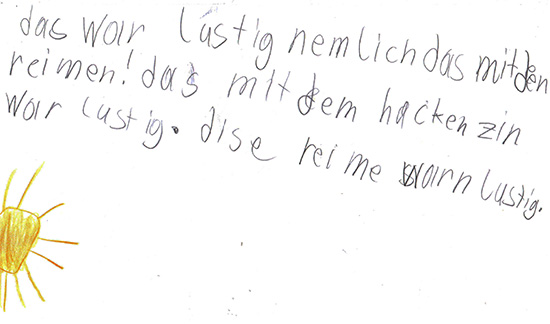 das war lustig nemlich das mit den
reimen! das mit dem hacken zin
war lustig. dise reime warn lustig.